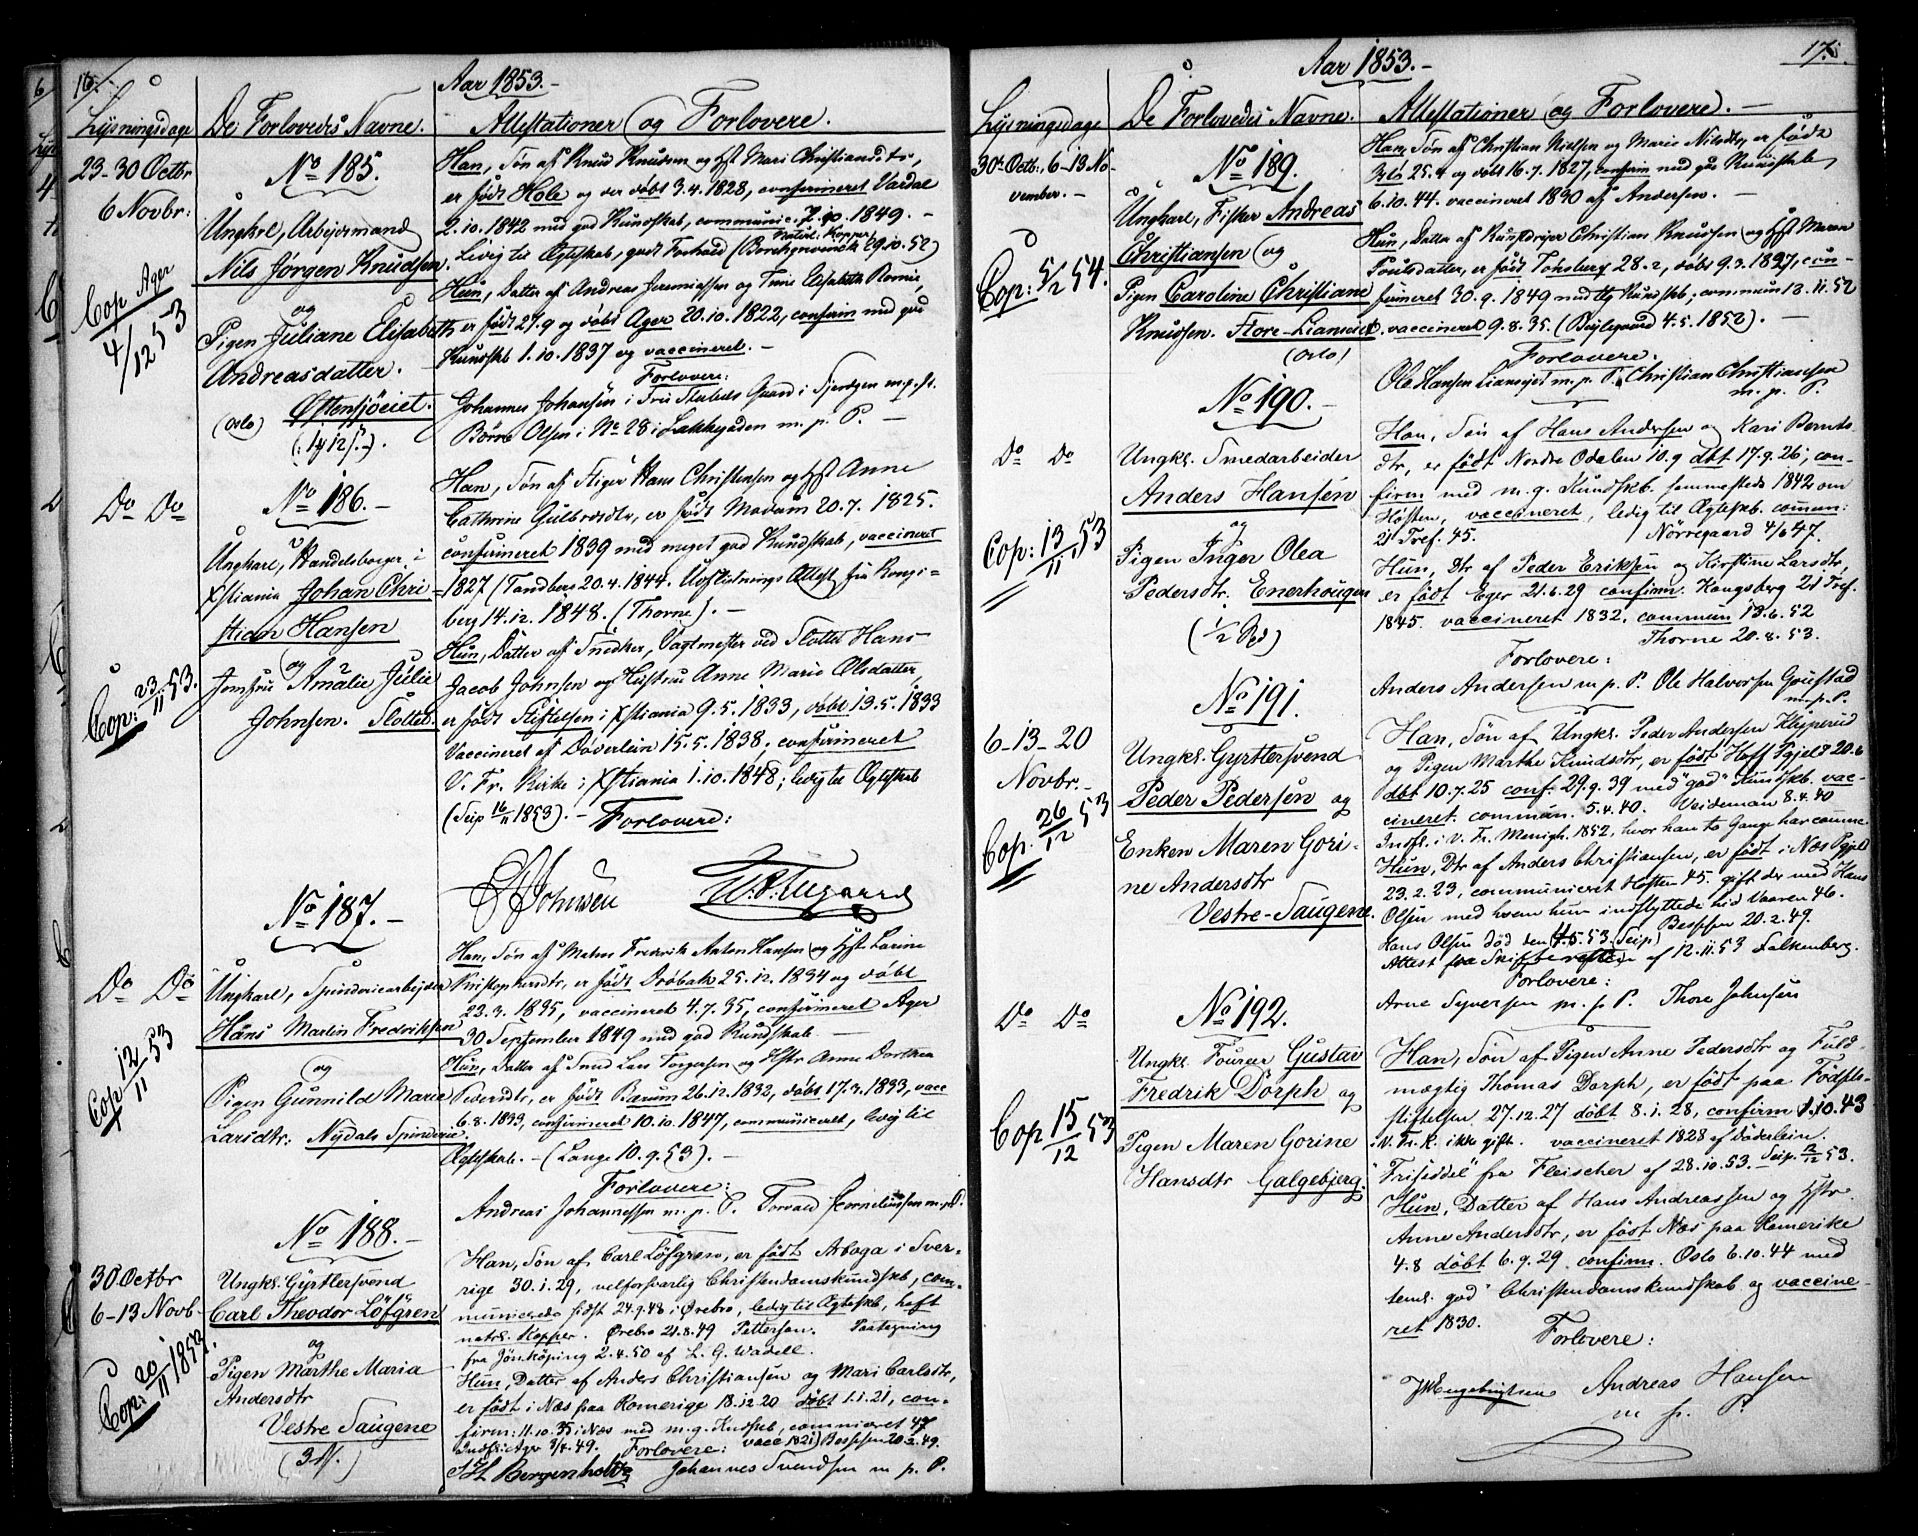 16.
Aar 1853.-
Lysningsdage
De Forlovedes Navne.
Attestationer og Forlovere.
23-30 Octbr
6 Novbr:
Cop Ager
4/12 53
No 185.
Ungkrl, Arbejdsmand
Nils Jørgen Knudsen
og
Pigen Juliane Elisabeth
Andreasdatter.
Østensjøeiet.
(Oslo)
Han, Søn af Knud Knudsen og Hst Mari Christiansdtr,
er født Hole og der døbt 3.4.1828, confirmeret Vardal
2.10.1842 med god Kundskab, communic. 7.10.1849.-
Natul. Kopper
Ledig til Ægteskab, godt Forhold (Borchgrevinck 29.10.52)
Hun, Datter af Andreas Jeremiassen og Trine Elisabeth
er født 27.9 og døbt Ager 20.10.1822, confirm med god
Kundskb 1.10.1837 og vaccineret.-
Forlovere:
Johannes Johansen i Gaard i m.p.P.
Børre Olsen i No 28 i Lakkegaden m.p.P. -
Do Do
Cop: 23/11 53.
No 186.-
Ungkarl, Handelsborger i
Xstiania Johan Chri-
stian Hansen
og
Jomfru Amalie Julie
Johnsen. Slottet
Han, Søn af Stiger Hans Christensen og Hst Anne
Cathrine Gulbrdsdtr, er født Modum 20.7.1825.
confirmeret 1839 med meget god Kundskab, vaccineret
1827 (Tandberg 20.4.1844. Udflytnings Attest fra Kongs-
berg 14.12.1848. (Thorne).-
Hun, Datter af Snedker, Vagtmester ved Slottet Hans
Jacob Johnsen og Hustru Anne Marie Olsdatter,
er født Stiftelsen i Xstiania 9.5.1833, døbt 19.5.1833
Vaccineret af Døderlein 15.5.1838. confirmeret
V. Fr. Kirke i Xstiania 1.10.1848; ledig til Ægteskab
(Seip 16/11 1853).- Forlovere:
Johnsen
Do Do
Cop 12/11 53
No 187.-
Ungkarl, Spinderiearbejder
Hans Martin Fredriksen
og
Pigen Gunnild Maria
Larsdtr. Nydals Spinderie.
Han, Søn af Maler Fredrik Anton Hansen og Hst. Karine
Kristophersdtr, er født Drøbak 25.12.1834 og døbt
22.3.1835, vaccineret 4.7.35, confirmeret Ager
30 September 1849 med god Kundskab -
Hun, Datter af Smed Lars Torgersen og Hstr Anne Dorthea
Pedersdtr, er født Bærum 26.12.1832, døbt 17.3.1833, vacc
6.8.1833, confirmeret 10.10.1847, communiceret, ledig til
Ægteskab.- (Lange 10.9.53).-
Forlovere:
Andreas Johannessen m.p.P. Torvald Corneliussen m.p.P.
30 Octbr
6-13 Novb-
Cop: 20/11 1853.
No 188.-
Ungkl. Gyrtlersvend
Carl Theodor Löfgren
og
Pigen Marthe Maria
Andersdtr
Vestre Saugene
Han, Søn af Carl Löfgren, er født Arboga i Sver-
rige 30.1.29, velforsvarlig Christendomskundskb, com-
municerede sidst 24.9.48 i Ørebro, ledig til Ægteskb, haft
natrl. Kopper. Ørebro 21.8.49 Pettersen. Paategning
fra Jönköping 2.4.50 af L. G. Wadell.
Hun, Datter af Anders Christiansen og Mari Carlsdtr,
er født i Næs paa Romerige 18.12.20 døbt 1.1.21, con-
firm: 11.10.35 i Næs med m.g. Kndskb, commniceret 47
Indfl. i Ager 3/4.49. Forlovere: vacc 1821) Bessesen 20.2.49.
Bergenholtz Johannes Svendsen m p. P.
17.
Aar 1853.-
Lysningsdage
De Forlovedes Navne.
Attestationer og Forlovere.-
30te Octb:, 6-13 No-
vember.-
Cop: 5/2 54.
No 189.
Ungkarl, Fisker Andreas
Christiansen og
Pigen Caroline Christiane
Knudsen. Store-Lianeiet.
(Oslo)
Han, Søn af Christian Nielsen og Marie Nilsdtr, er født
Oslo 25.4 og døbt 16.7.1827, confirm med gd Kundskab
6.10.44. vaccineret 1830 af Andersen.
Hun, Datter af Kunstdrejer Christian Knudsen og Hst Maren
Poulsdatter, er født Tønsberg 28.2, døbt 9.3.1827, con-
firmeret 30.9.1849 med Kundskb; commun 13.11.52
vaccineret 9.8.35. (Bejlegaard 4.5.1852).-
Forlovere.
Ole Hansen Lianeiet m.p.P. Christian Christiansen
m.p.P.
Do Do
Cop: 13/11 53
No 190.-
Ungkl. Smedarbeider
Anders Hansen
og
Pigen Inger Olea
Pedersdtr. Enerhougen
Han, Søn af Hans Andersen og Kari Bernts-
dtr, er født Nordre Odalen 10.9 dbt 17.9.26; con-
firm med m.g. Kundskb. sammesteds 1842 om
Høsten, vaccineret, ledig til Ægteskb. commun:
21 Tref. 45. Nörregaard 4/6 47.
Hun, Dtr af Peder Eriksen og Kirstine Larsdtr,
er født Eger 21.6.29 confirm. Kongsberg 21 Tref.
1845. vaccineret 1832, commun 13.6.52
Thorne 20.8.53.
Forlovere:
Anders Andersen m.p.P. Ole Halvorsen Goustad
m.p.P.
6-13-20
Novbr.-
Cop. 26/12 53
No 191.
Ungkl. Gyrtlersvend
Peder Pedersen og
Enken Maren Gori-
ne Andersdtr
Vestre-Saugene.
Han, Søn af Ungkl. Peder Andersen Klæpperud
og Pigen Marthe Knudsdtr, er født Hoff Pgjeld 20.6
dbt 10.7.25 conf. 29.9.39 med "god" Kundskb. vac-
cineret. commun. 5.4.40. Vrideman 8.4.40
Indfl. i V. Fr. Menigh. 1852, hvor han to Gange har comme.
Hun, Dtr af Anders Christiansen, er født i Næs Pgjeld
23.2.23, communiceret Høsten 45. gift der med Hans
Olsen med hvem hun indflyttede hid Vaaren 46.
Bessesen 20.2.49.
Hans Olsen død den 4.5.53. Seip)
Attest fra Skifteretten af 12.11.53 Falkenberg.
Forlovere:
Arne Syversen m.p.P. Thore Johnsen
Do Do
Cop 15/12 53
No 192.
Ungkl. Fourer Gustav
Fredrik Dorph og
Pigen Maren Gorine
Hansdtr Galgebjerg.
Han, Søn af Pigen Anne Pedersdtr og Fuld-
mægtig Thomas Dorph, er født paa Fødsels-
stiftelsen 27.12.27 døbt 8.1.28, confirm 1.10.43
i V. Fr. K. ikke gift. vaccineret 1828 af Døderlein.
"Friseddel" fra Fleischer af 28.10.53. Seip 53.
Hun, Datter af Hans Andreassen og Hstr.
Anne Andersdtr, er født Næs paa Romerike
4.8 døbt 6.9.29 confirm. Oslo 6.10.44 med
temml. god Christendomskundskab og vaccine-
ret 1830.
Forlovere:
Engebrigtsen Andreas Hansen
m p. P.